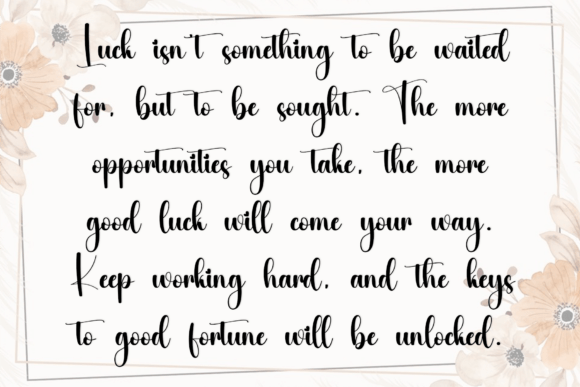 Luck isn't something to be waited
for, but to be sought. The more
opportunities you take, the more
good luck will come your way.
Keep working hard, and the keys
to good fortune will be unlocked.